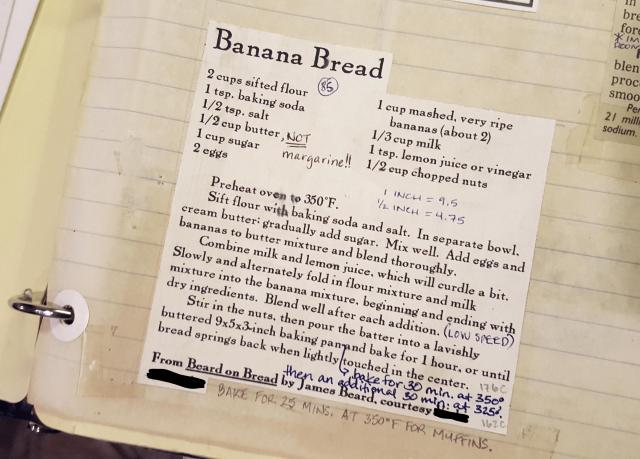 Banana Bread
2 cups sifted flour 85
1 tsp. baking soda
1/2 tsp. salt
1/2 cup butter, NOT
margarine!!
1 cup sugar
2 eggs
1 cup mashed, very ripe
bananas (about 2)
1/3 cup milk
1 tsp. lemon juice or vinegar
1/2 cup chopped nuts
1 INCH = 9.5
1/2 INCH = 4.75
Preheat oven to 350°F.
Sift flour with baking soda and salt. In separate bowl,
cream butter; gradually add sugar. Mix well. Add eggs and
bananas to butter mixture and blend thoroughly.
Combine milk and lemon juice, which will curdle a bit.
Slowly and alternately fold in flour mixture and milk
mixture into the banana mixture, beginning and ending with
dry ingredients. Blend well after each addition. (LOW SPEED)
Stir in the nuts, then pour the batter into a lavishly
buttered 9x5x3-inch baking pan and bake for 1 hour, or until
bread springs back when lightly touched in the center.
bake for 30 min. at 350° 176C
then an additional 30 min. at 325°. 162C
From Beard on Bread by James Beard, courtesy
BAKE FOR 25 MINS. AT 350°F FOR MUFFINS.
in
bre
fore
blen
proc
smoo
Per
21 mill
sodium.